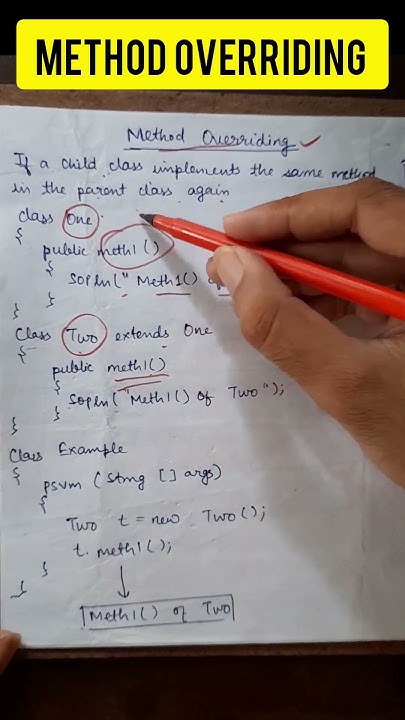 METHOD OVERRIDING
Method Overriding
If a child class implements the same method
in the parent class again
class One
{
public meth1()
{
SOPln(" Meth1()
}
}
Class Two extends One
{
public meth1()
{
SOPln("Meth1() of Two");
}
}
Class Example
{
psvm (String [] args)
{
Two t = new Two();
t. meth1();
}
}
Meth1() of Two